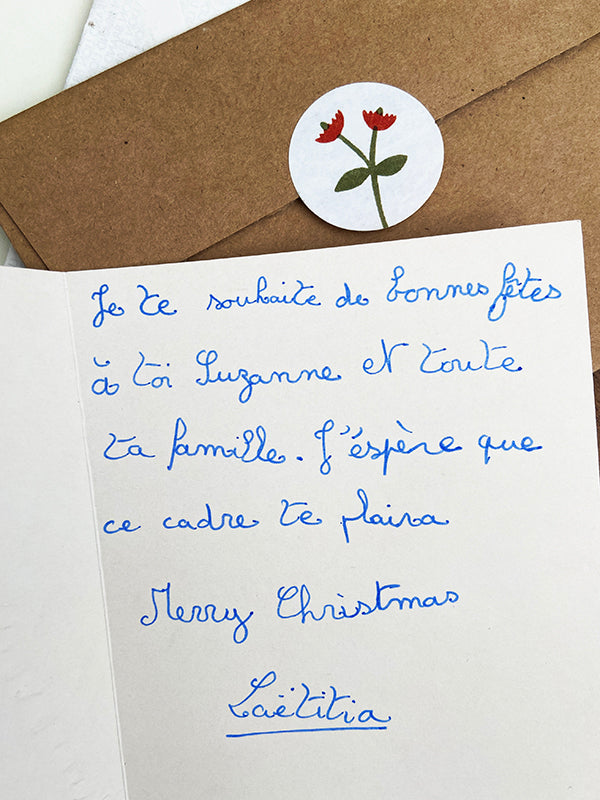 Je te souhaite de bonnes fêtes
à toi Suzanne et toute
ta famille. J'éspère que
ce cadre te plaira
Merry Christmas
Laëtitia